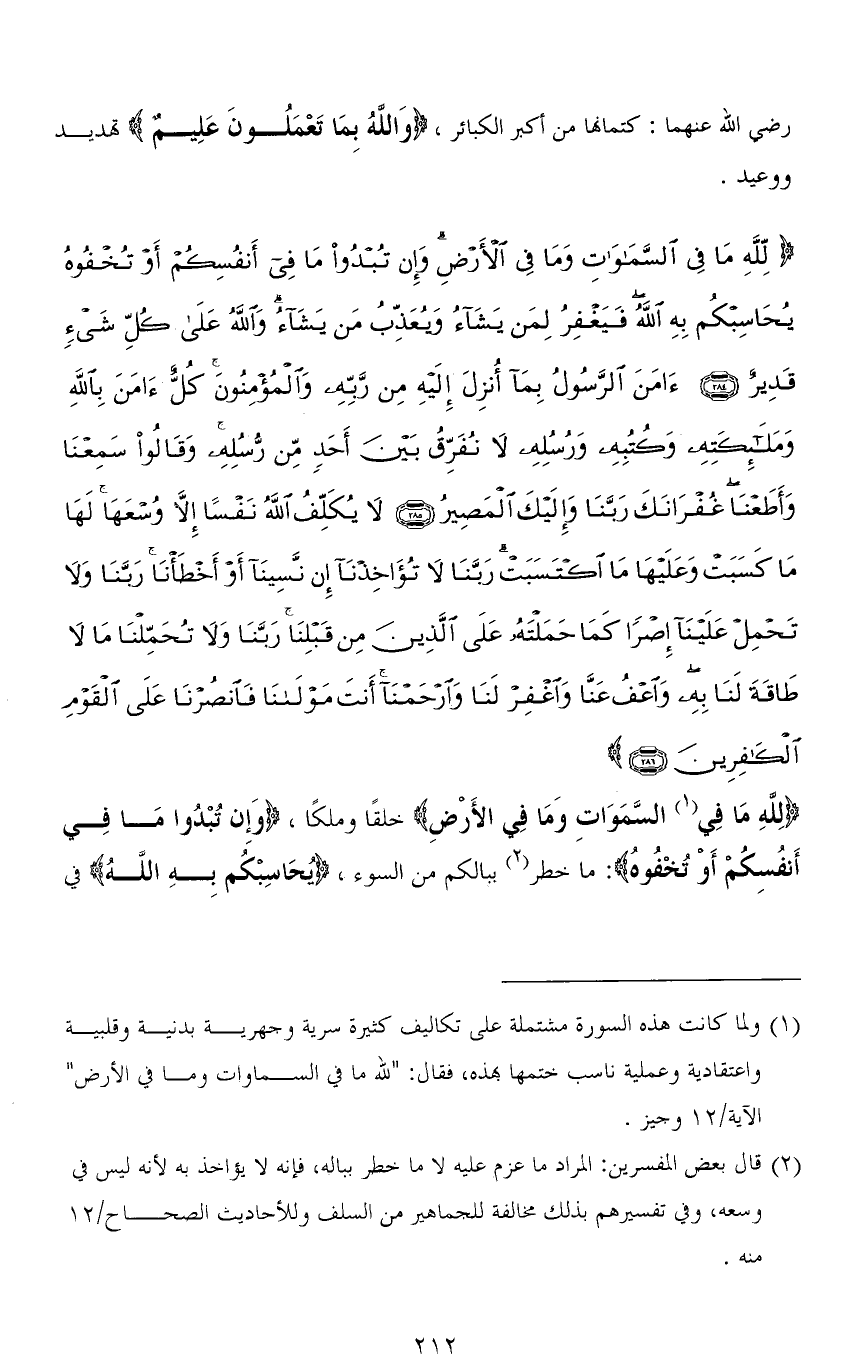 رضي الله عنهما : كتمانها من أكبر الكبائر ، ﴿وَاللَّهُ بِمَا تَعْمَلُونَ عَلِيمٌ ﴾ تهديد
ووعيد .
﴿ لِّلَّهِ مَا فِي ٱلسَّمَٰوَٰتِ وَمَا فِي ٱلْأَرْضِۗ وَإِن تُبْدُوا۟ مَا فِىٓ أَنفُسِكُمْ أَوْ تُخْفُوهُ
يُحَاسِبْكُم بِهِ ٱللَّهُۖ فَيَغْفِرُ لِمَن يَشَآءُ وَيُعَذِّبُ مَن يَشَآءُۗ وَٱللَّهُ عَلَىٰ كُلِّ شَىْءٍ
قَدِيرٌ ٢٨٤ ءَامَنَ ٱلرَّسُولُ بِمَآ أُنزِلَ إِلَيْهِ مِن رَّبِّهِۦ وَٱلْمُؤْمِنُونَۚ كُلٌّ ءَامَنَ بِٱللَّهِ
وَمَلَٰٓئِكَتِهِۦ وَكُتُبِهِۦ وَرُسُلِهِۦ لَا نُفَرِّقُ بَيْنَ أَحَدٍ مِّن رُّسُلِهِۦۚ وَقَالُوا۟ سَمِعْنَا
وَأَطَعْنَاۖ غُفْرَانَكَ رَبَّنَا وَإِلَيْكَ ٱلْمَصِيرُ ٢٨٥ لَا يُكَلِّفُ ٱللَّهُ نَفْسًا إِلَّا وُسْعَهَاۚ لَهَا
مَا كَسَبَتْ وَعَلَيْهَا مَا ٱكْتَسَبَتْۗ رَبَّنَا لَا تُؤَاخِذْنَآ إِن نَّسِينَآ أَوْ أَخْطَأْنَاۚ رَبَّنَا وَلَا
تَحْمِلْ عَلَيْنَآ إِصْرًا كَمَا حَمَلْتَهُۥ عَلَى ٱلَّذِينَ مِن قَبْلِنَاۚ رَبَّنَا وَلَا تُحَمِّلْنَا مَا لَا
طَاقَةَ لَنَا بِهِۦۖ وَٱعْفُ عَنَّا وَٱغْفِرْ لَنَا وَٱرْحَمْنَآۚ أَنتَ مَوْلَىٰنَا فَٱنصُرْنَا عَلَى ٱلْقَوْمِ
ٱلْكَٰفِرِينَ ٢٨٦ ﴾
﴿لِلَّهِ مَا فِي(١) السَّمَوَاتِ وَمَا فِي الأَرْضِ﴾ خلقًا وملكًا ، ﴿وَإِن تُبْدُوا مَا فِي
أَنفُسِكُمْ أَوْ تُخْفُوهُ﴾: ما خطر(٢) ببالكم من السوء ، ﴿يُحَاسِبْكُم بِهِ اللَّهُ﴾ في
(١) ولما كانت هذه السورة مشتملة على تكاليف كثيرة سرية وجهرية بدنية وقلبية
واعتقادية وعملية ناسب ختمها بهذه، فقال: "لله ما في السماوات وما في الأرض"
الآية/١٢ وجيز .
(٢) قال بعض المفسرين: المراد ما عزم عليه لا ما خطر بباله، فإنه لا يؤاخذ به لأنه ليس في
وسعه، وفي تفسيرهم بذلك مخالفة للجماهير من السلف وللأحاديث الصحاح/١٢
منه .
٢١٢